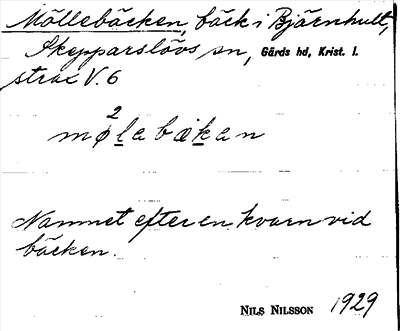 Möllebäcken, bäck i Bjärnhult,
Skepparslövs sn, Gärds hd, Krist. l.
strax V. 6
2
mølebækan
Namnet efter en kvarn vid
bäcken.
NILS NILSSON 1929